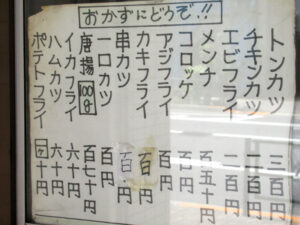 おかずにどうぞ!!
トンカツ 三百円
チキンカツ 二百円
エビフライ 二百円
メンチ 百五十円
コロッケ 百円
アジフライ 百円
カキフライ 百円
串カツ 百円
一口カツ 百円
唐揚100g 百七十円
イカフライ 六十円
ハムカツ 六十円
ポテトフライ 四十円